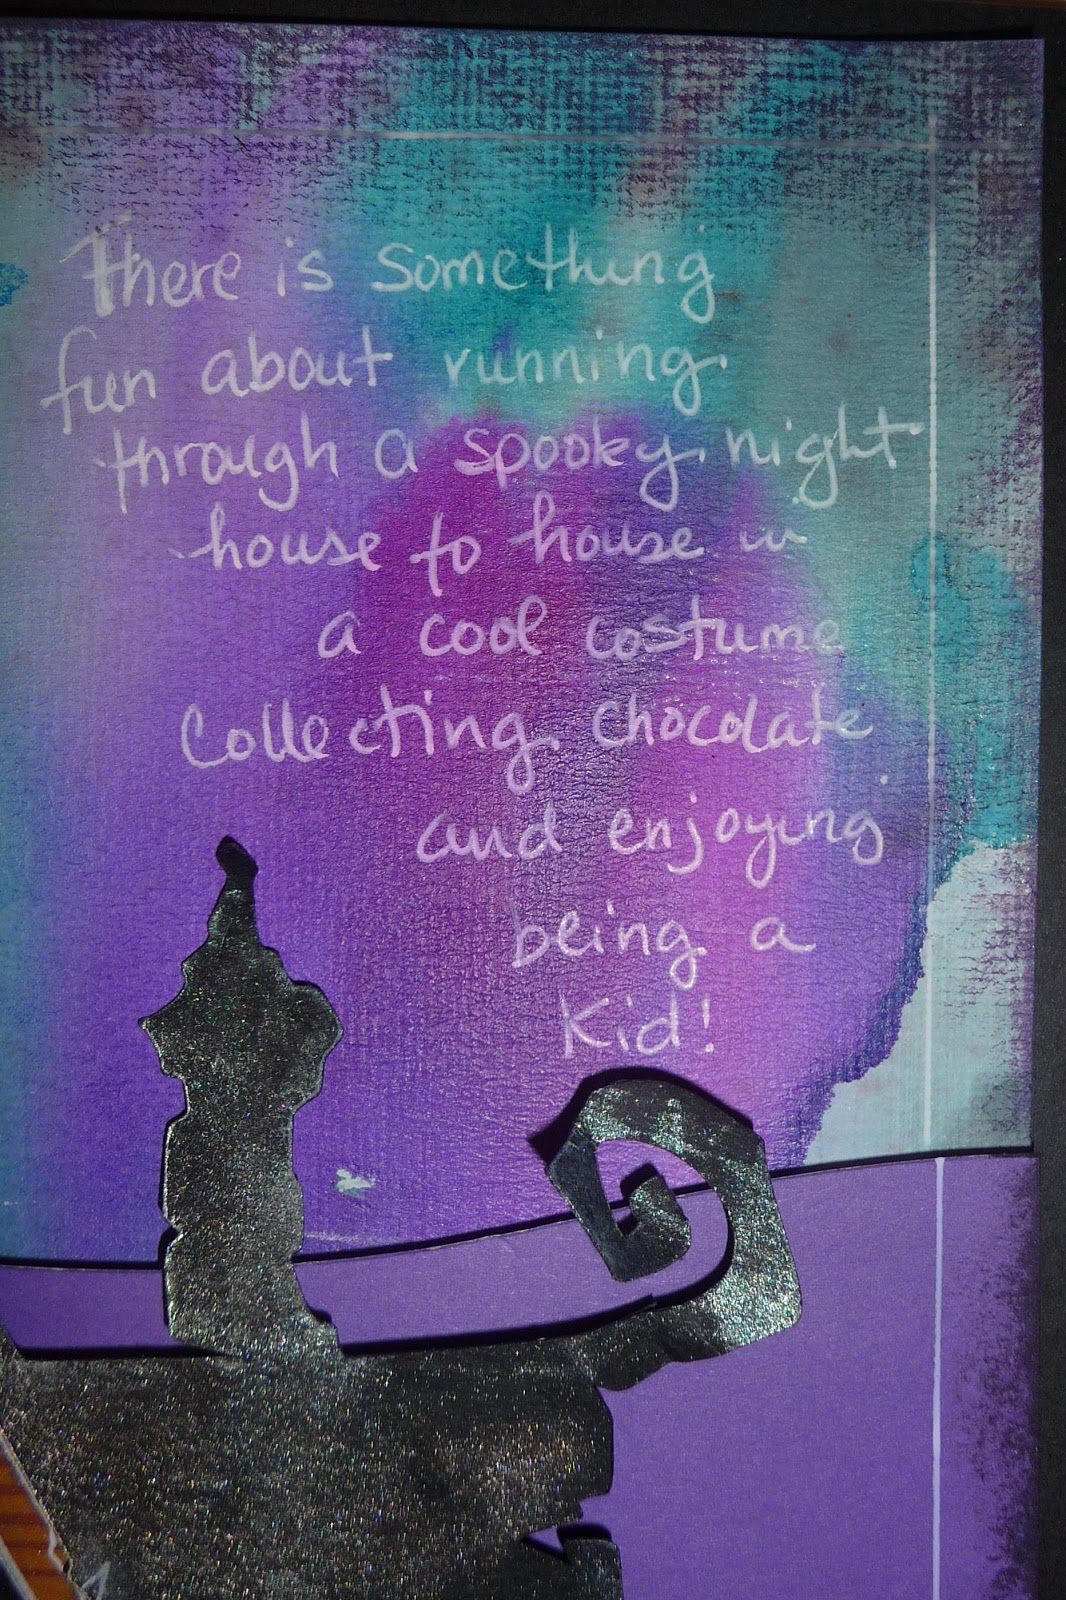 There is something
fun about running
through a spooky night
house to house in
a cool costume
Collecting chocolate
and enjoying
being a
Kid!